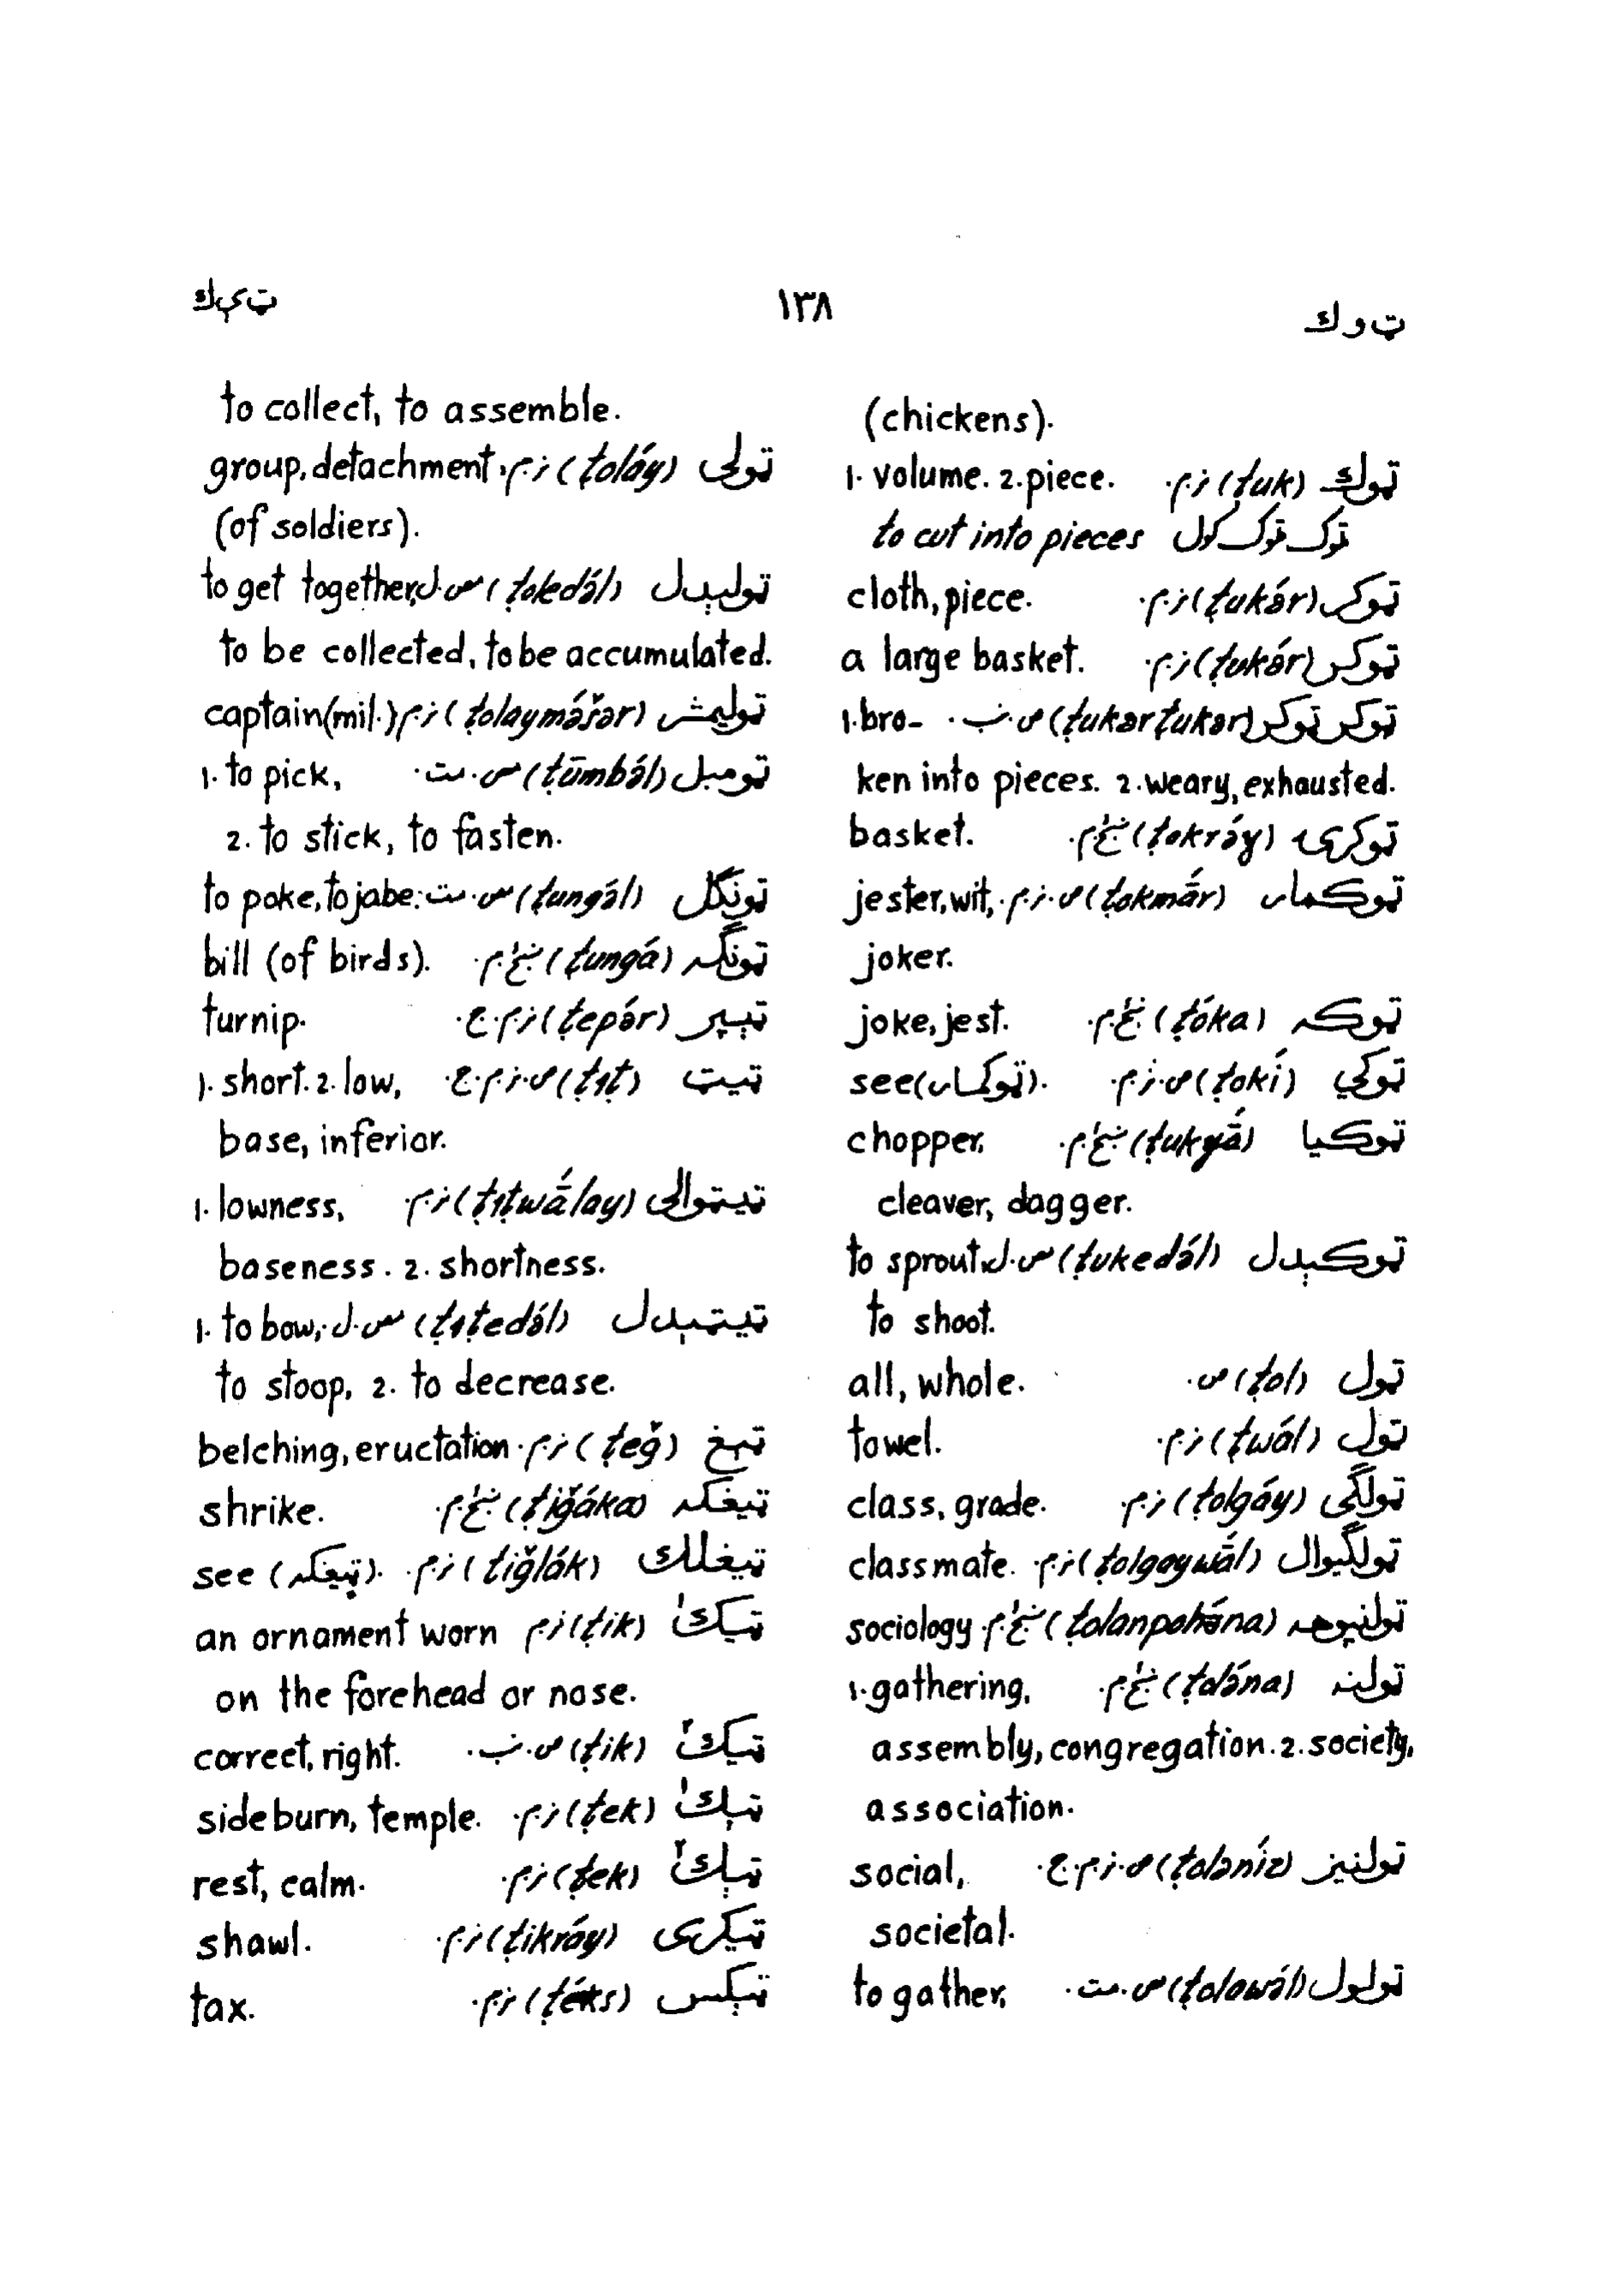 ټ و ك
۱۳۸
ټ ې ك
(chickens).
ټوك (ṭuk) ن.م. 1. volume. 2. piece.
ټوک ټوک کول to cut into pieces
ټوکر (ṭukə́r) ن.م. cloth, piece.
ټوکر (ṭukə́r) ن.م. a large basket.
ټوکر ټوکر (ṭukər ṭukər) ص.ب. 1. bro-
ken into pieces. 2. weary, exhausted.
ټوکرۍ (ṭokrə́y) basket.
(ṭokmā́r) ص.ن.م. jester, wit,
joker.
ټوکه (ṭóka) joke, jest.
ټوکي (ṭokí) ص.ن.م. see (ټوکمار).
ټوکیا (ṭukyā́) chopper,
cleaver, dagger.
ټوکېدل (ṭukedə́l) to sprout,
to shoot.
ټول (ṭol) ص. all, whole.
ټول (ṭwāl) ن.م. towel.
ټولګی (ṭolgáy) ن.م. class, grade.
ټولګیوال (ṭolgaywā́l) ن.م. classmate.
(ṭolanpohə́na) sociology
ټولنه (ṭolə́na) 1. gathering,
assembly, congregation. 2. society,
association.
ټولنیز (ṭoləníz) ص.ن.م.ج. social,
societal.
ټولول (ṭolawə́l) to gather,
to collect, to assemble.
ټولی (ṭoláy) ن.م. group, detachment
(of soldiers).
ټولېدل (ṭoledə́l) to get together,
to be collected, to be accumulated.
ټولیمشر (ṭolaymə́šər) ن.م. captain (mil.)
ټومبل (ṭūmbə́l) 1. to pick,
2. to stick, to fasten.
ټونګل (ṭungə́l) to poke, to jabe:
ټونګه (ṭungá) bill (of birds).
ټېپر (ṭepə́r) ن.م.ج. turnip.
ټیټ (ṭıṭ) ص.ن.م.ج. 1. short. 2. low,
base, inferior.
ټیټوالی (ṭıṭwā́lay) ن.م. 1. lowness,
baseness. 2. shortness.
ټیټېدل (ṭıṭedə́l) 1. to bow,
to stoop, 2. to decrease.
ټېغ (ṭeǧ) ن.م. belching, eructation
ټیغکه (ṭiǧáka) shrike.
ټیغلك (ṭiǧlák) ن.م. see (ټیغکه).
ټیک (ṭik) ن.م. an ornament worn
on the forehead or nose.
ټیک (ṭik) ص.ب. correct, right.
ټېک (ṭek) ن.م. sideburn, temple.
ټېک (ṭek) ن.م. rest, calm.
ټیکری (ṭikráy) ن.م. shawl.
ټېکس (ṭéks) ن.م. tax.